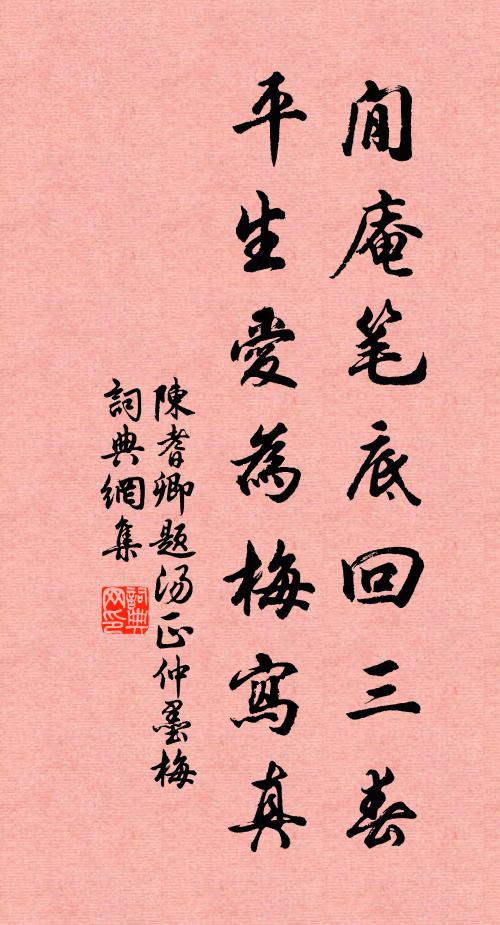 閒庵笔底回三春
平生愛為梅寫真
陳耆卿題湯正仲墨梅
詞典網集
詞典网印